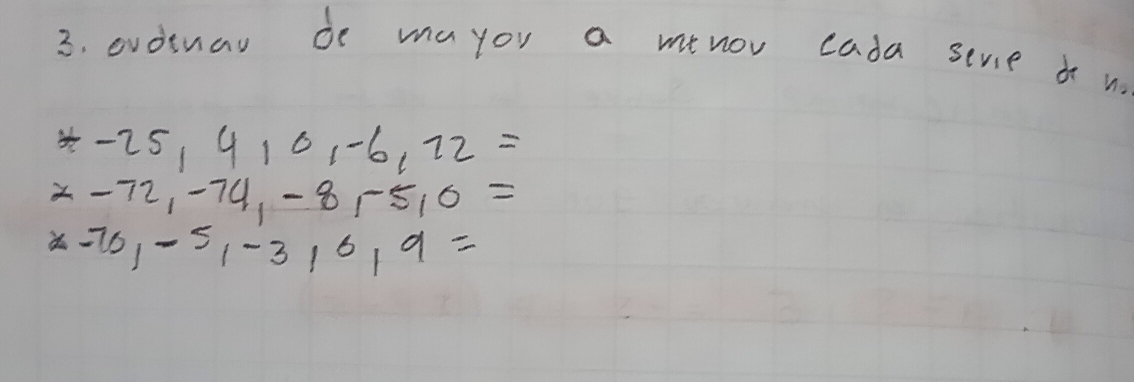 3. ordenar de mayor a menor cada serie de no.
* -25, 4, 0, -6, 12 =
* -12, -14, -8, -5, 0 =
* -10, -5, -3, 6, 9 =